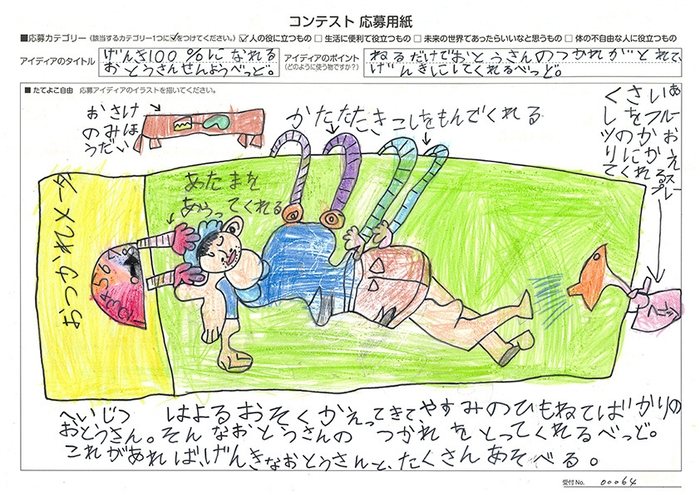 コンテスト 応募用紙
■応募カテゴリー（該当するカテゴリー1つに✓をつけてください。） ☑人の役に立つもの □生活に便利で役立つもの □未来の世界であったらいいなと思うもの □体の不自由な人に役立つもの
アイディアのタイトル
げんき100％になれる
おとうさんせんようべっど。
アイディアのポイント
（どのように使う物ですか？）
ねるだけでおとうさんのつかれがとれて、
げんきにしてくれるべっど。
■たてよこ自由 応募アイディアのイラストを描いてください。
おさけ
のみほ
うだい
かたたたきこしをもんでくれる
あったまを
あらってくれる
おつかれメータ
へいじつ はよるおそくかえってきてやすみのひもねてばかりの
おとうさん。そんなおとうさんの つかれをとってくれるべっど。
これがあれば、げんきなおとうさんと、たくさんあそべる。
受付No. 00064